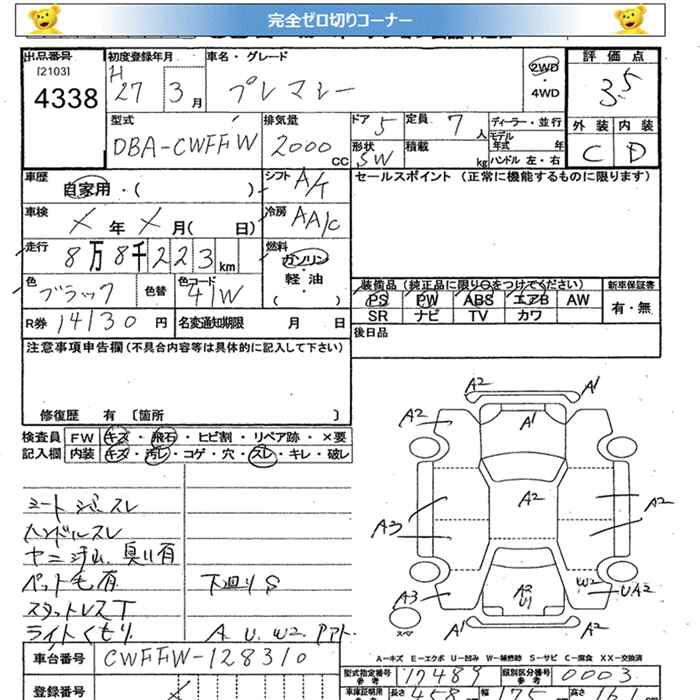 完全ゼロ切りコーナー
出品番号 初度登録年月 車名・グレード 評価点
[2103] H
4338 27 3月 プレマシー 2WD・4WD 3.5
型式 排気量 ドア 5 定員 7人 ディーラー・並行 外装 内装
DBA-CWFFW 2000cc 形状 SW 積載 kg モデル年式 年 C D
ハンドル 左・右
車歴 シフト A/T セールスポイント (正常に機能するものに限ります)
自家用・( )
車検 X年X月( 日) 冷房 AA/C
走行 8万8千223km 燃料 ガソリン 軽・油 ( )
色 ブラック 色替 色コード 41W 装備品(純正品に限り○をつけてください) 新車保証書
PS PW ABS エアB AW 有・無
R券 14130円 名変通知期限 月 日 SR ナビ TV カワ
注意事項申告欄(不具合内容等は具体的に記入して下さい) 後日品
修復歴 有 〔箇所 〕
検査員 FW キズ・飛石・ヒビ割・リペア跡・×要
記入欄 内装 キズ・汚レ・コゲ・穴・スレ・キレ・破レ
A2 A1
A2 A1
A2
A3 A2
A3 A2 U1 W2 UA2
スペア A1 A2
シート シミ スレ
ハンドルスレ
ヤニ汚ム、臭い有
ペット毛有 下廻りS
スタットレスT
ライトくもり A. U. W2. アアト.
A-キズ E-エクボ U-凹み W-補修跡 S-サビ C-腐食 XX-交換済
車台番号 CWFFW-128310 型式指定番号 参考 17489 類別区分番号 参考 0003
登録番号 車庫証明用 長さ 458 幅 175 高さ 161